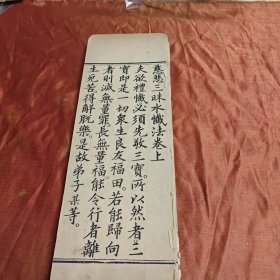 慈悲三昧水懺法卷上
夫欲禮懺必須先敬三寶所以然者三
寶即是一切衆生良友福田若能歸向
者則滅無量罪長無量福能令行者離
生死苦得解脫樂是故弟子某等